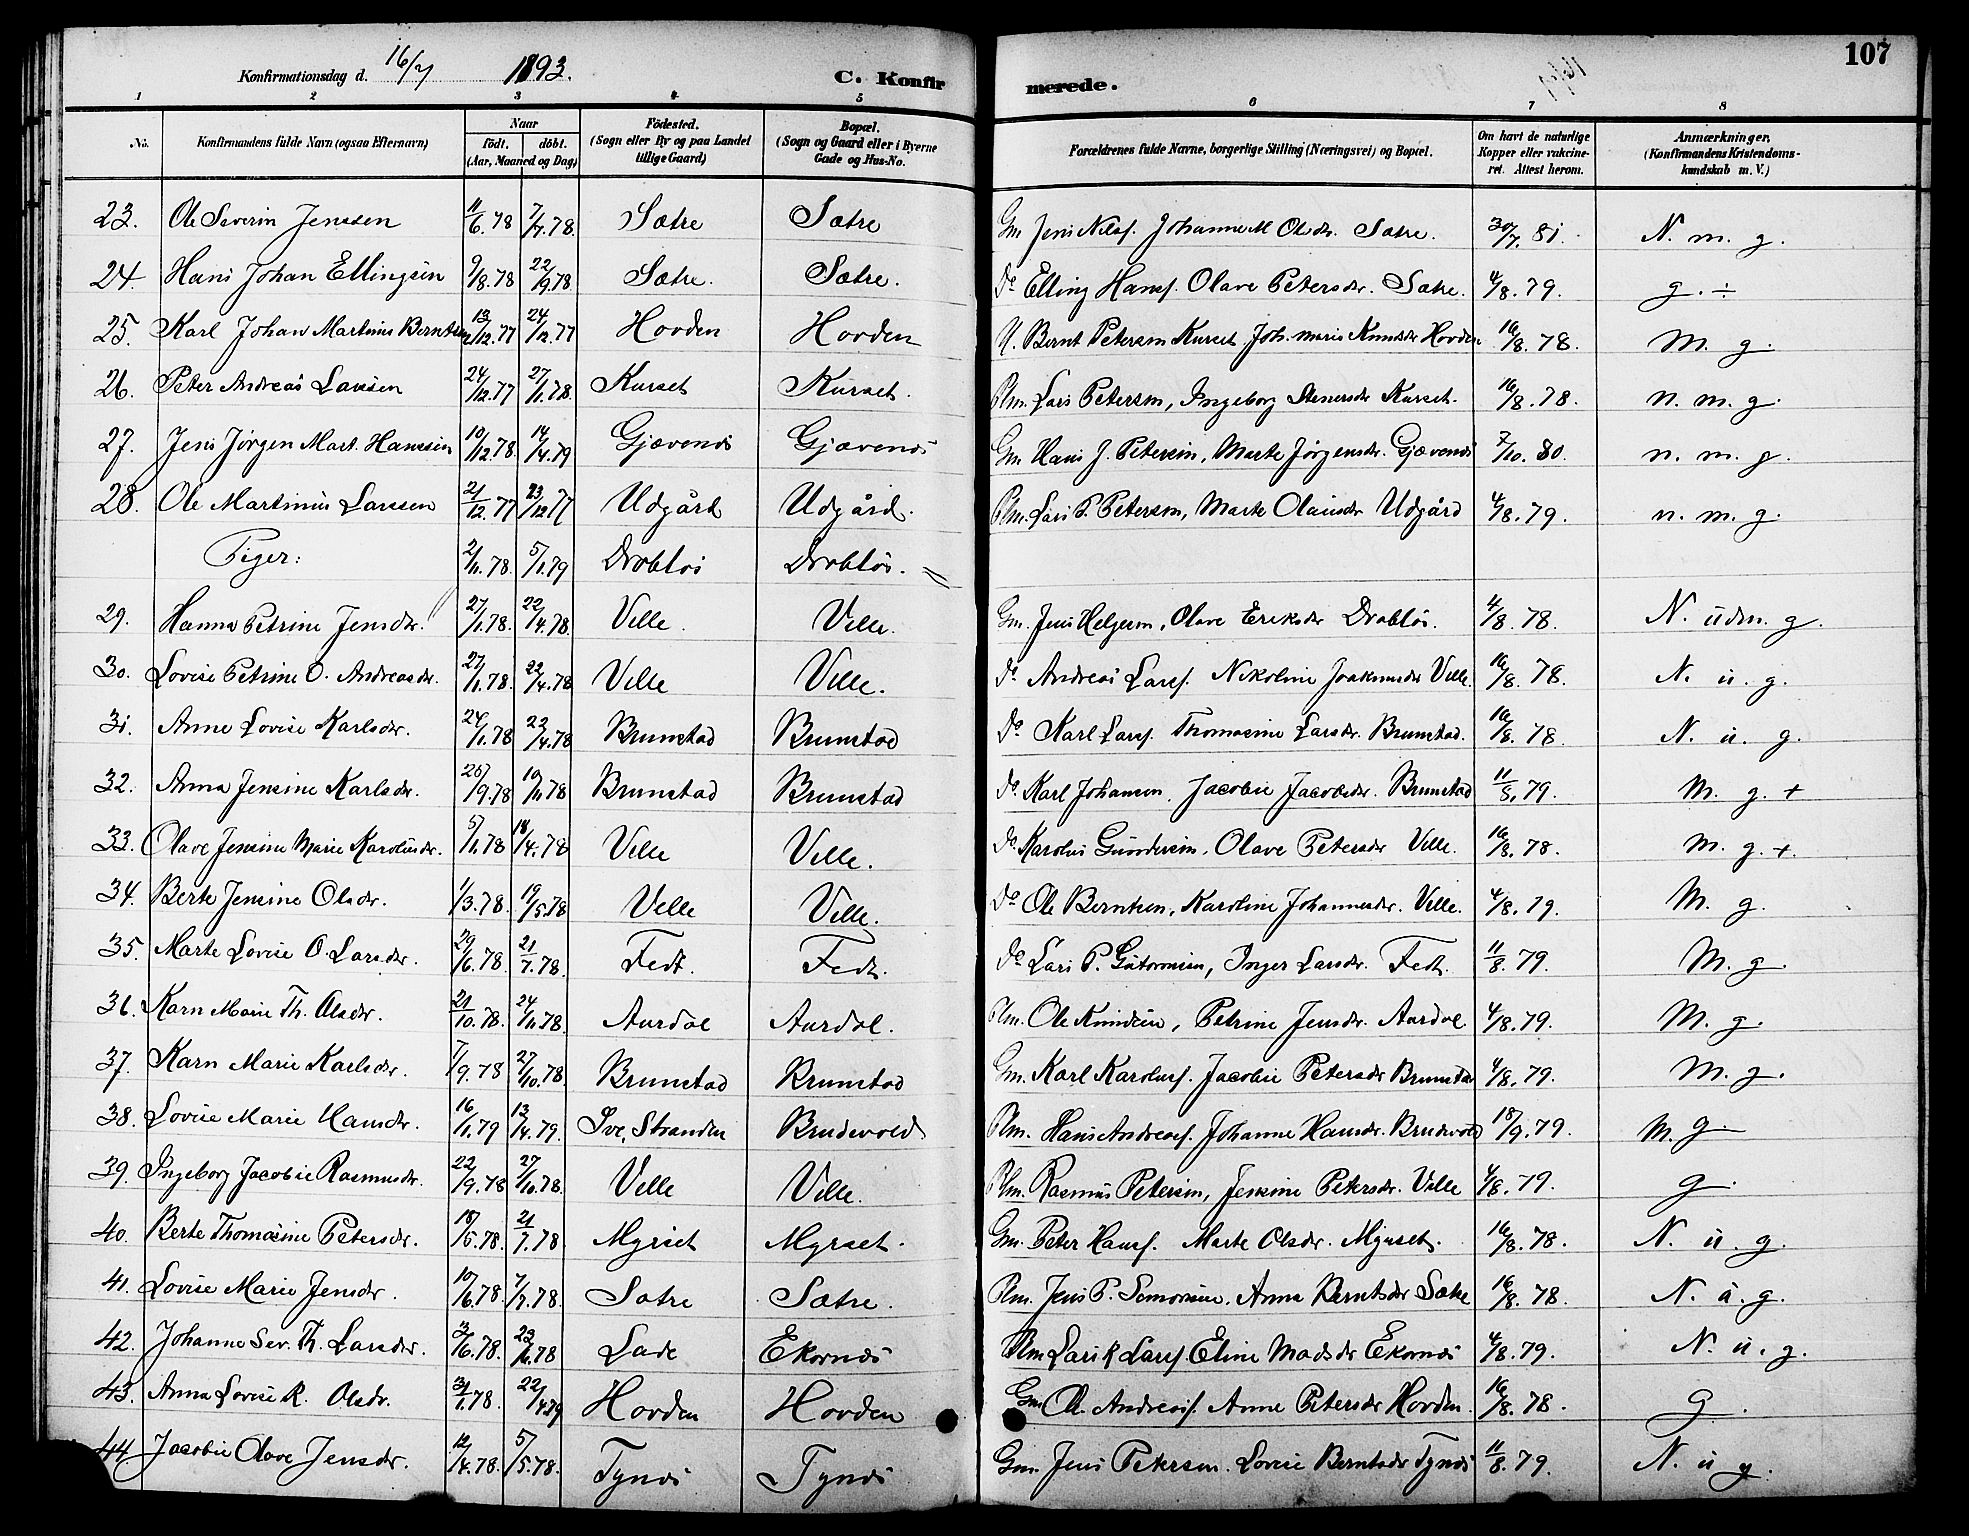 Konfirmationsdag d. 16/7 1893. C. Konfirmerede. 107
1 2 3 4 5 6 7 8
No. Konfirmandens fulde Navn (ogsaa Efternavn) Naar født. døbt. (Aar, Maaned og Dag) Fødested. (Sogn eller By og paa Landet tillige Gaard) Bopæl. (Sogn og Gaard eller i Byerne Gade og Hus-No. Forældrenes fulde Navne, borgerlige Stilling (Næringsvei) og Bopæl. Om havt de naturlige Kopper eller vakcineret. Attest herom. Anmærkninger, (Konfirmandens Kristendomskundskab m. V.)
23. Ole Severin Jenssen 11/6.78 7/7.78. Sætre Sætre Gm. Jens Nilsf. Johanne M Olsdr. Sætre. 30/7.81. N. m. g.
24. Hans Johan Ellingsen 9/8.78 22/9.78 Sætre. Sætre. Do Elling Hansf. Olave Petersdr. Sætre. 4/8.79. g. ÷
25. Karl Johan Martinus Berntsen 13/12.77 24/12.77 Hovden Hovden U. Bernt Petersen Kurset Joh. Marie Knutsdr Hovden 16/8.78. M. g.
26. Peter Andreas Larssen 24/12.77 27/1.78. Kurset Kurset. Plm. Lars Petersen, Ingeborg Stenersdr Kurset. 16/8.78. n. m. g.
27. Jens Jørgen Mart. Hanssen 10/12.78. 14/4.79 Gjævenes Gjævenes Gm. Hans J. Petersen, Marte Jørgensdr. Gjævenes 7/10.80. n. m. g.
28. Ole Martinus Larssen 21/12.77 23/12 77 Udgård Udgård. Plm. Lars P. Petersen, Marte Olausdr Udgård 4/8.79. n. m. g.
Piger: 2/11.78. 5/1.79 Drabløs Drabløs.
29. Hanna Petrine Jensdr. 27/1.78. 22/4.78. Velle. Velle. Gm. Jens Helgesen, Olave Eriksdr Drabløs. 4/8.78. N. uden. g.
30. Lovise Petrine O. Andreasdr. 27/1.78. 22/4.78 Velle Velle. Do. Andreas Larsf. Nikoline Joakimsdr Velle. 16/8.78. N. u. g.
31. Anne Lovise Karlsdr. 24/1.78 22/4.78 Brunstad Brunstad Do Karl Larsf. Thomasine Larsdr. Brunstad. 16/8.78. N. u. g.
32. Anna Jensine Karlsdr. 26/9.78 10/11.78 Brunstad Brunstad Do. Karl Johansen, Jacobie Jacobsdr. Brunstad 11/8.79. M. g. +
33. Olave Jensine Marie Karolusdr. 5/1.78 18/4.78 Velle Velle. Do. Karolus Gundersen, Olave Petersdr Velle. 16/8.78. M. g. +.
34. Berte Jensine Olsdr. 1/3.78. 19/5.78 Velle Velle. Do Ole Berntsen, Karoline Johannesdr. Velle. 4/8.79. M. g.
35. Marte Lovise O. Larsdr. 29/6.78. 21/7.78. Fedt. Fedt. Do Lars P. Guttormsen, Inger Larsdr. Fedt. 11/8.79. M. g.
36. Karn Marie Th. Olsdr. 21/10.78. 24/11.78. Aurdal Aurdal. Plm. Ole Knudsen, Petrine Jensdr. Aurdal 4/8.79. M. g.
37. Karn Marie Karlsdr. 7/9.78 27/10.78. Brunstad Brunstad Gm. Karl Karolusf. Jacobie Petersdr Brunstad 4/8.79. M. g.
38. Lovise Marie Hansdr. 16/1.79 13/4.79. Ive, Stranden Brudevold Plm. Hans Andreasf. Johanne Hansdr. Brudevold 18/9.79. M. g.
39. Ingeborg Jacobie Rasmusdr. 22/9.78 27/10.78. Velle Velle. Plm. Rasmus Petersen, Jensine Petersdr. Velle 4/8.79. g.
40. Berte Thomasine Petersdr. 18/5.78. 21/7.78 Myrset Myrset. Gm. Peter Hansf. Marte Olsdr. Myrset. 16/8.78. N. u. g.
41. Lovise Marie Jensdr. 10/6.78. 7/7.78. Sætre Sætre. Plm. Jens P. Simonsen. Anna Berntsdr Sætre 16/8.78. N. u. g.
42. Johanne Sev. Th. Larsdr. 3/6.78. 23/6.78 Lade Ekornes Plm Lars K Larsf. Eline Madsdr Ekornes 4/8.79. N. u. g.
43. Anna Lovise R. Olsdr. 31/1.78. 22/4.79 Hovden Hovden Gm Ole Andreasf. Anne Petersdr Hovden. 16/8.78. g.
44 Jacobie Olave Jensdr. 12/4.78. 5/5.78. Tynes Tynes Gm. Jens Petersen. Lovise Berntsdr Tynes 11/8.79. N. u g.